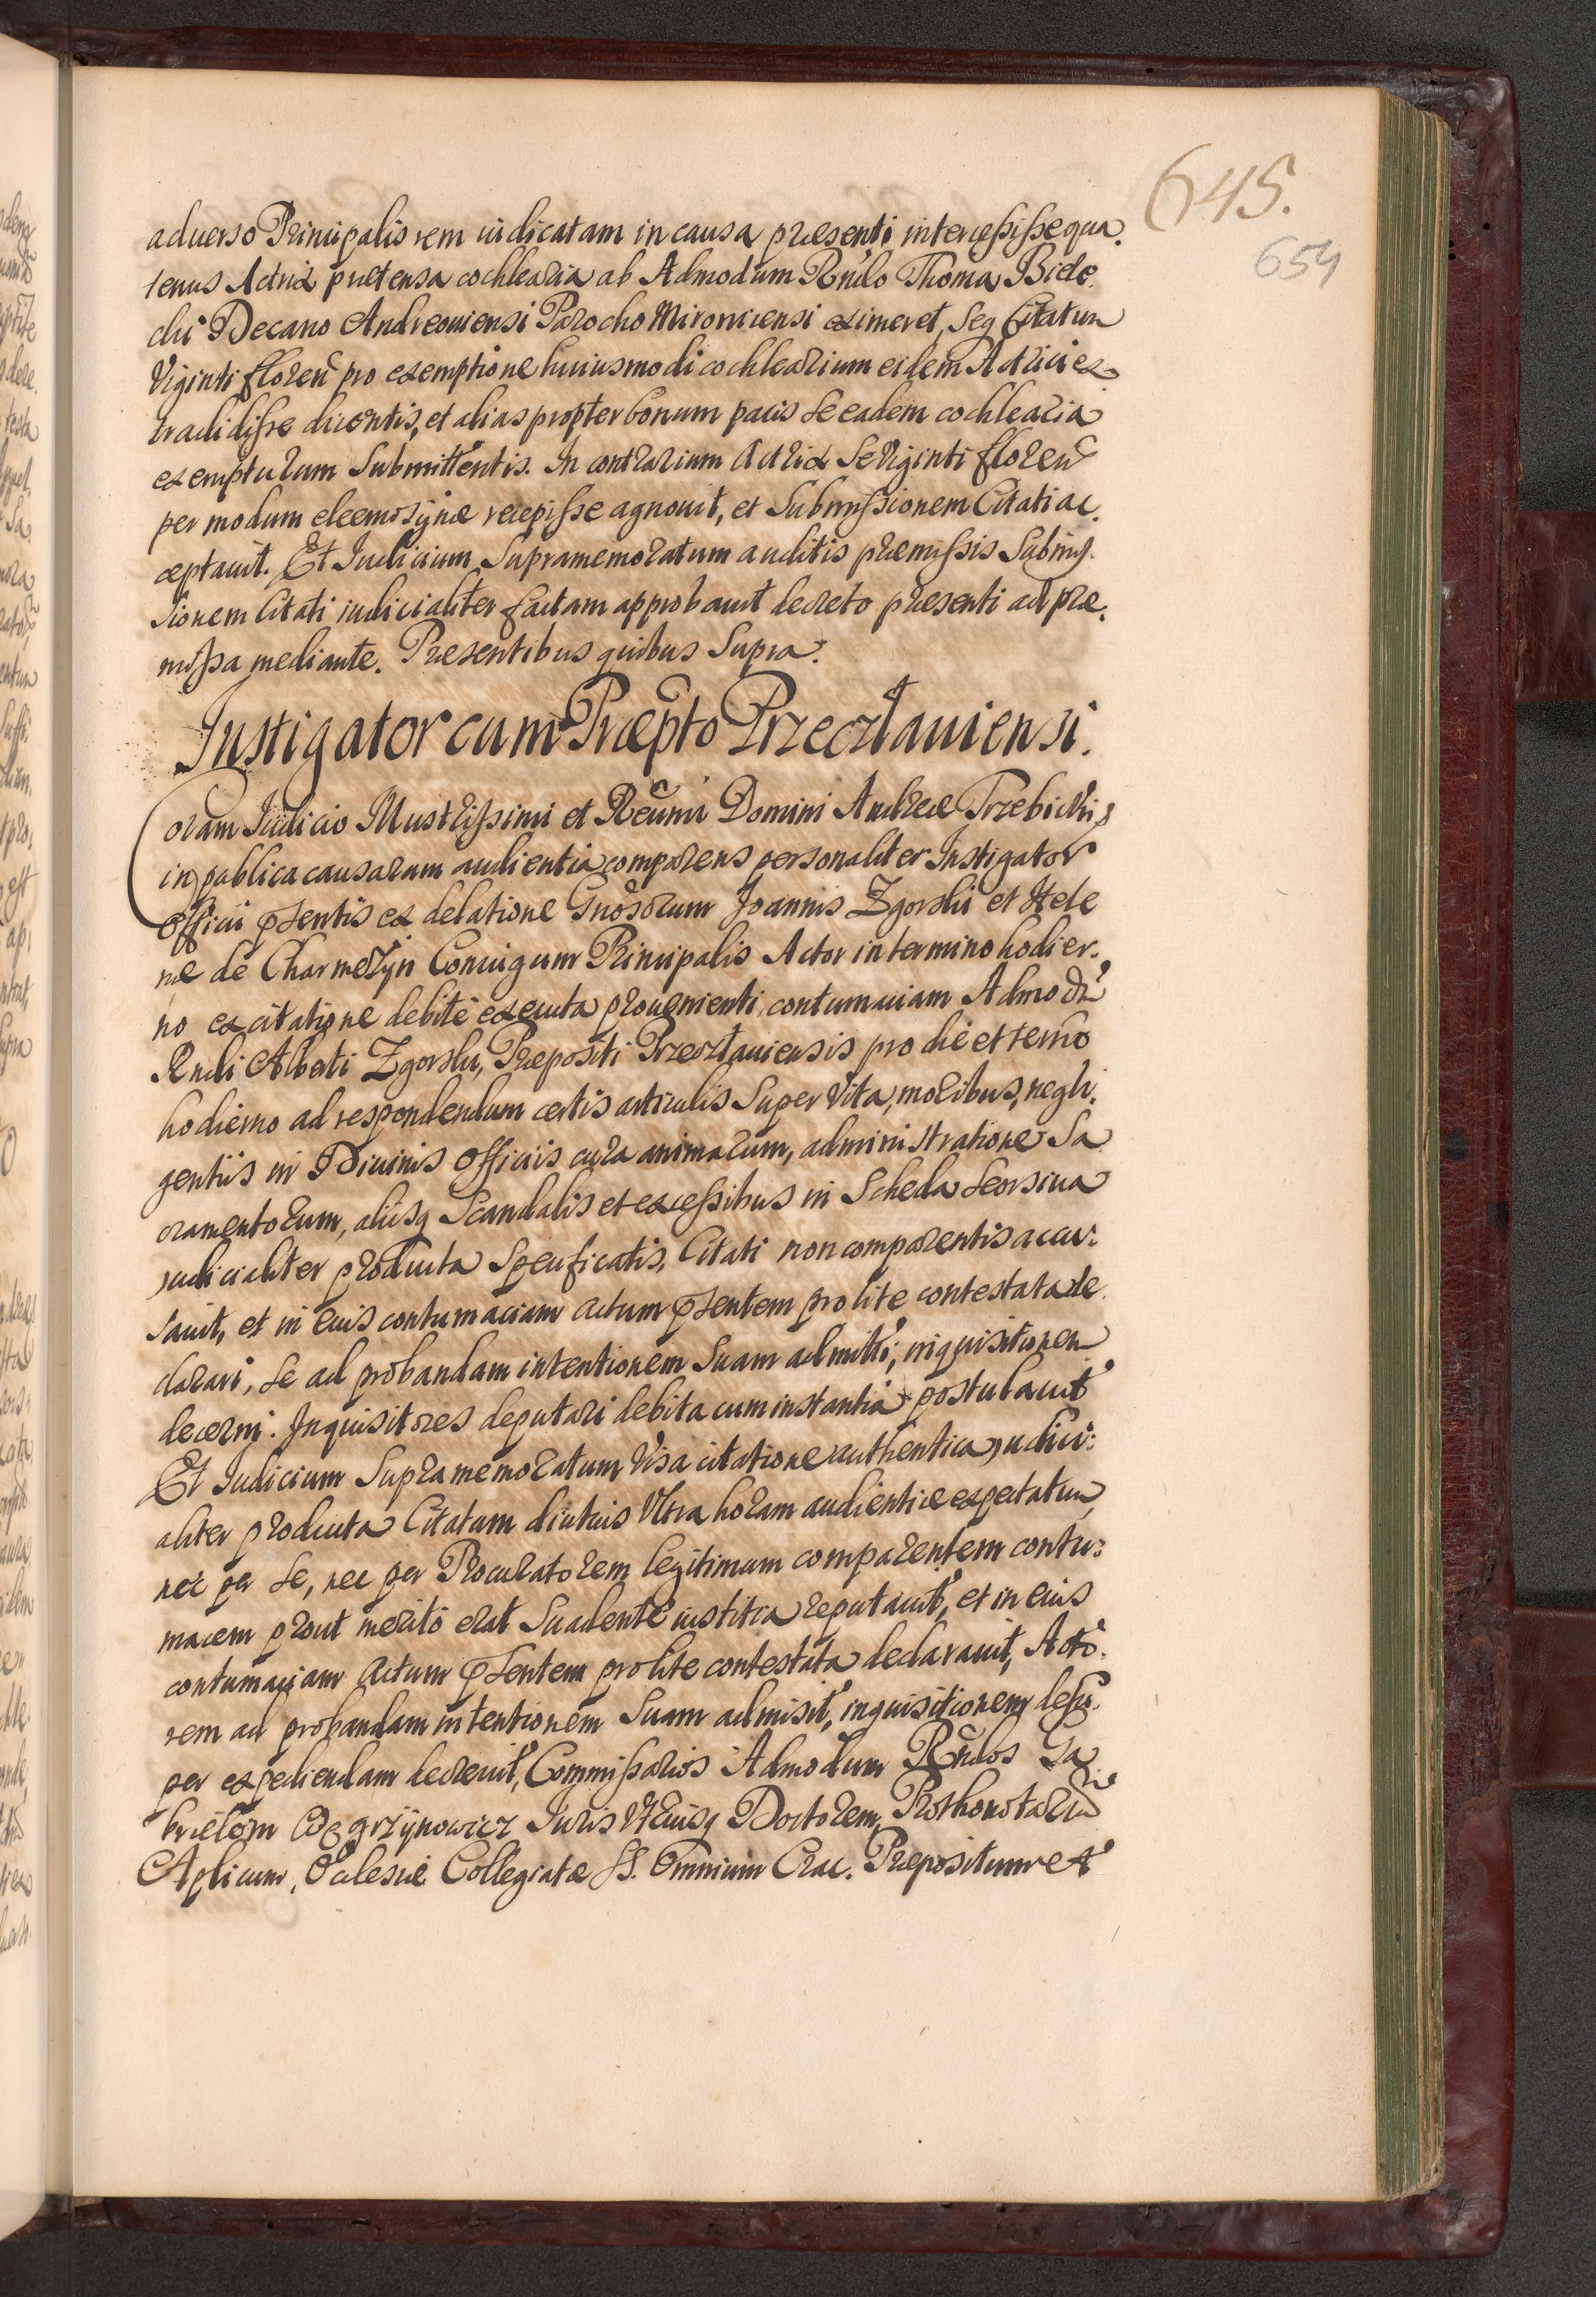 645.
654
aduerso Principalis rem iudicatam in causa præsenti intercessisse qua.
tenus Actrix prætensa cochlearia ab Admodum Rñdo Thoma Biele.
cki Decano Andreouiensi Parocho Mironicensi eximeret, Seq Citatum
Viginti floren pro exemptione huiusmodi cochlearium eidem Actrici ex
tradidisse dicentis, et alias propter bonum pacis Se eadem cochlearia
exempturum Submittentis. In contrarium Actrix Se Viginti floren
per modum eleemosijnæ recepisse agnouit, et Submissionem Citati ac.
ceptauit. Et Iudicium Supramemoratum auditis præmissis Submis.
sionem Citati iudicialiter factam approbauit decreto præsenti ad præ.
missa mediante. Præsentibus quibus Supra.
Instigator cum Præpto Przecztauiensi.
Coram Iudicio Illustrissimi et Reũmi Domini Andreæ Trzebicki,
in publica causarum audientia comparens personaliter Instigator
Officii pñsentis ex delatione Gnõsorum Joannis Zgorski et Hele
næ de Charmezÿn Coniugum Principalis Actor in termino hodier.
no ex citatione debitè executa proueniente, contumaciam Admodũ
Rndi Alberti Zgorski, Præpositi Przecztauiensis pro die et termo
hodierno ad respondendum certis articulis Super Vita, moribus, negli.
gentiis in Diuinis Officiis cura animarum, administratione Sa
cramentorum, aliisq Scandalis et excessibus in Scheda Seorsiua
iudicialiter producta Specificatis, Citati non comparentis accu:
sauit, et in eius contumaciam actum pñsentem pro lite contestata de
clarari, Se ad probandam intentionem Suam admitti, inquisitionem
decerni. Inquisitores deputari debita cum instantia postulauit
Et Iudicium Supramemoratum Visa citatione authentica judici:
aliter producta Citatum diutius Vltra horam audientiæ expectatum,
nec per Se, nec per Procuratorem legitimum comparentem contu:
macem prout meritò erat Suadente iustitia reputauit, et in eius
contumaciam Actum pñsentem pro lite contestata declarauit, Acto.
rem ad probandam intentionem Suam admisit, inquisitionem desu.
per expediendam decreuit, Commissarios Admodum Rñdos Ga
brielem Węgrzÿnowicz Iuris Vtriusq Doctorem, Prothonotariũ
Aplicum, Ecclesiæ Collegiatæ SS. Omnium Crac. Præpositum et